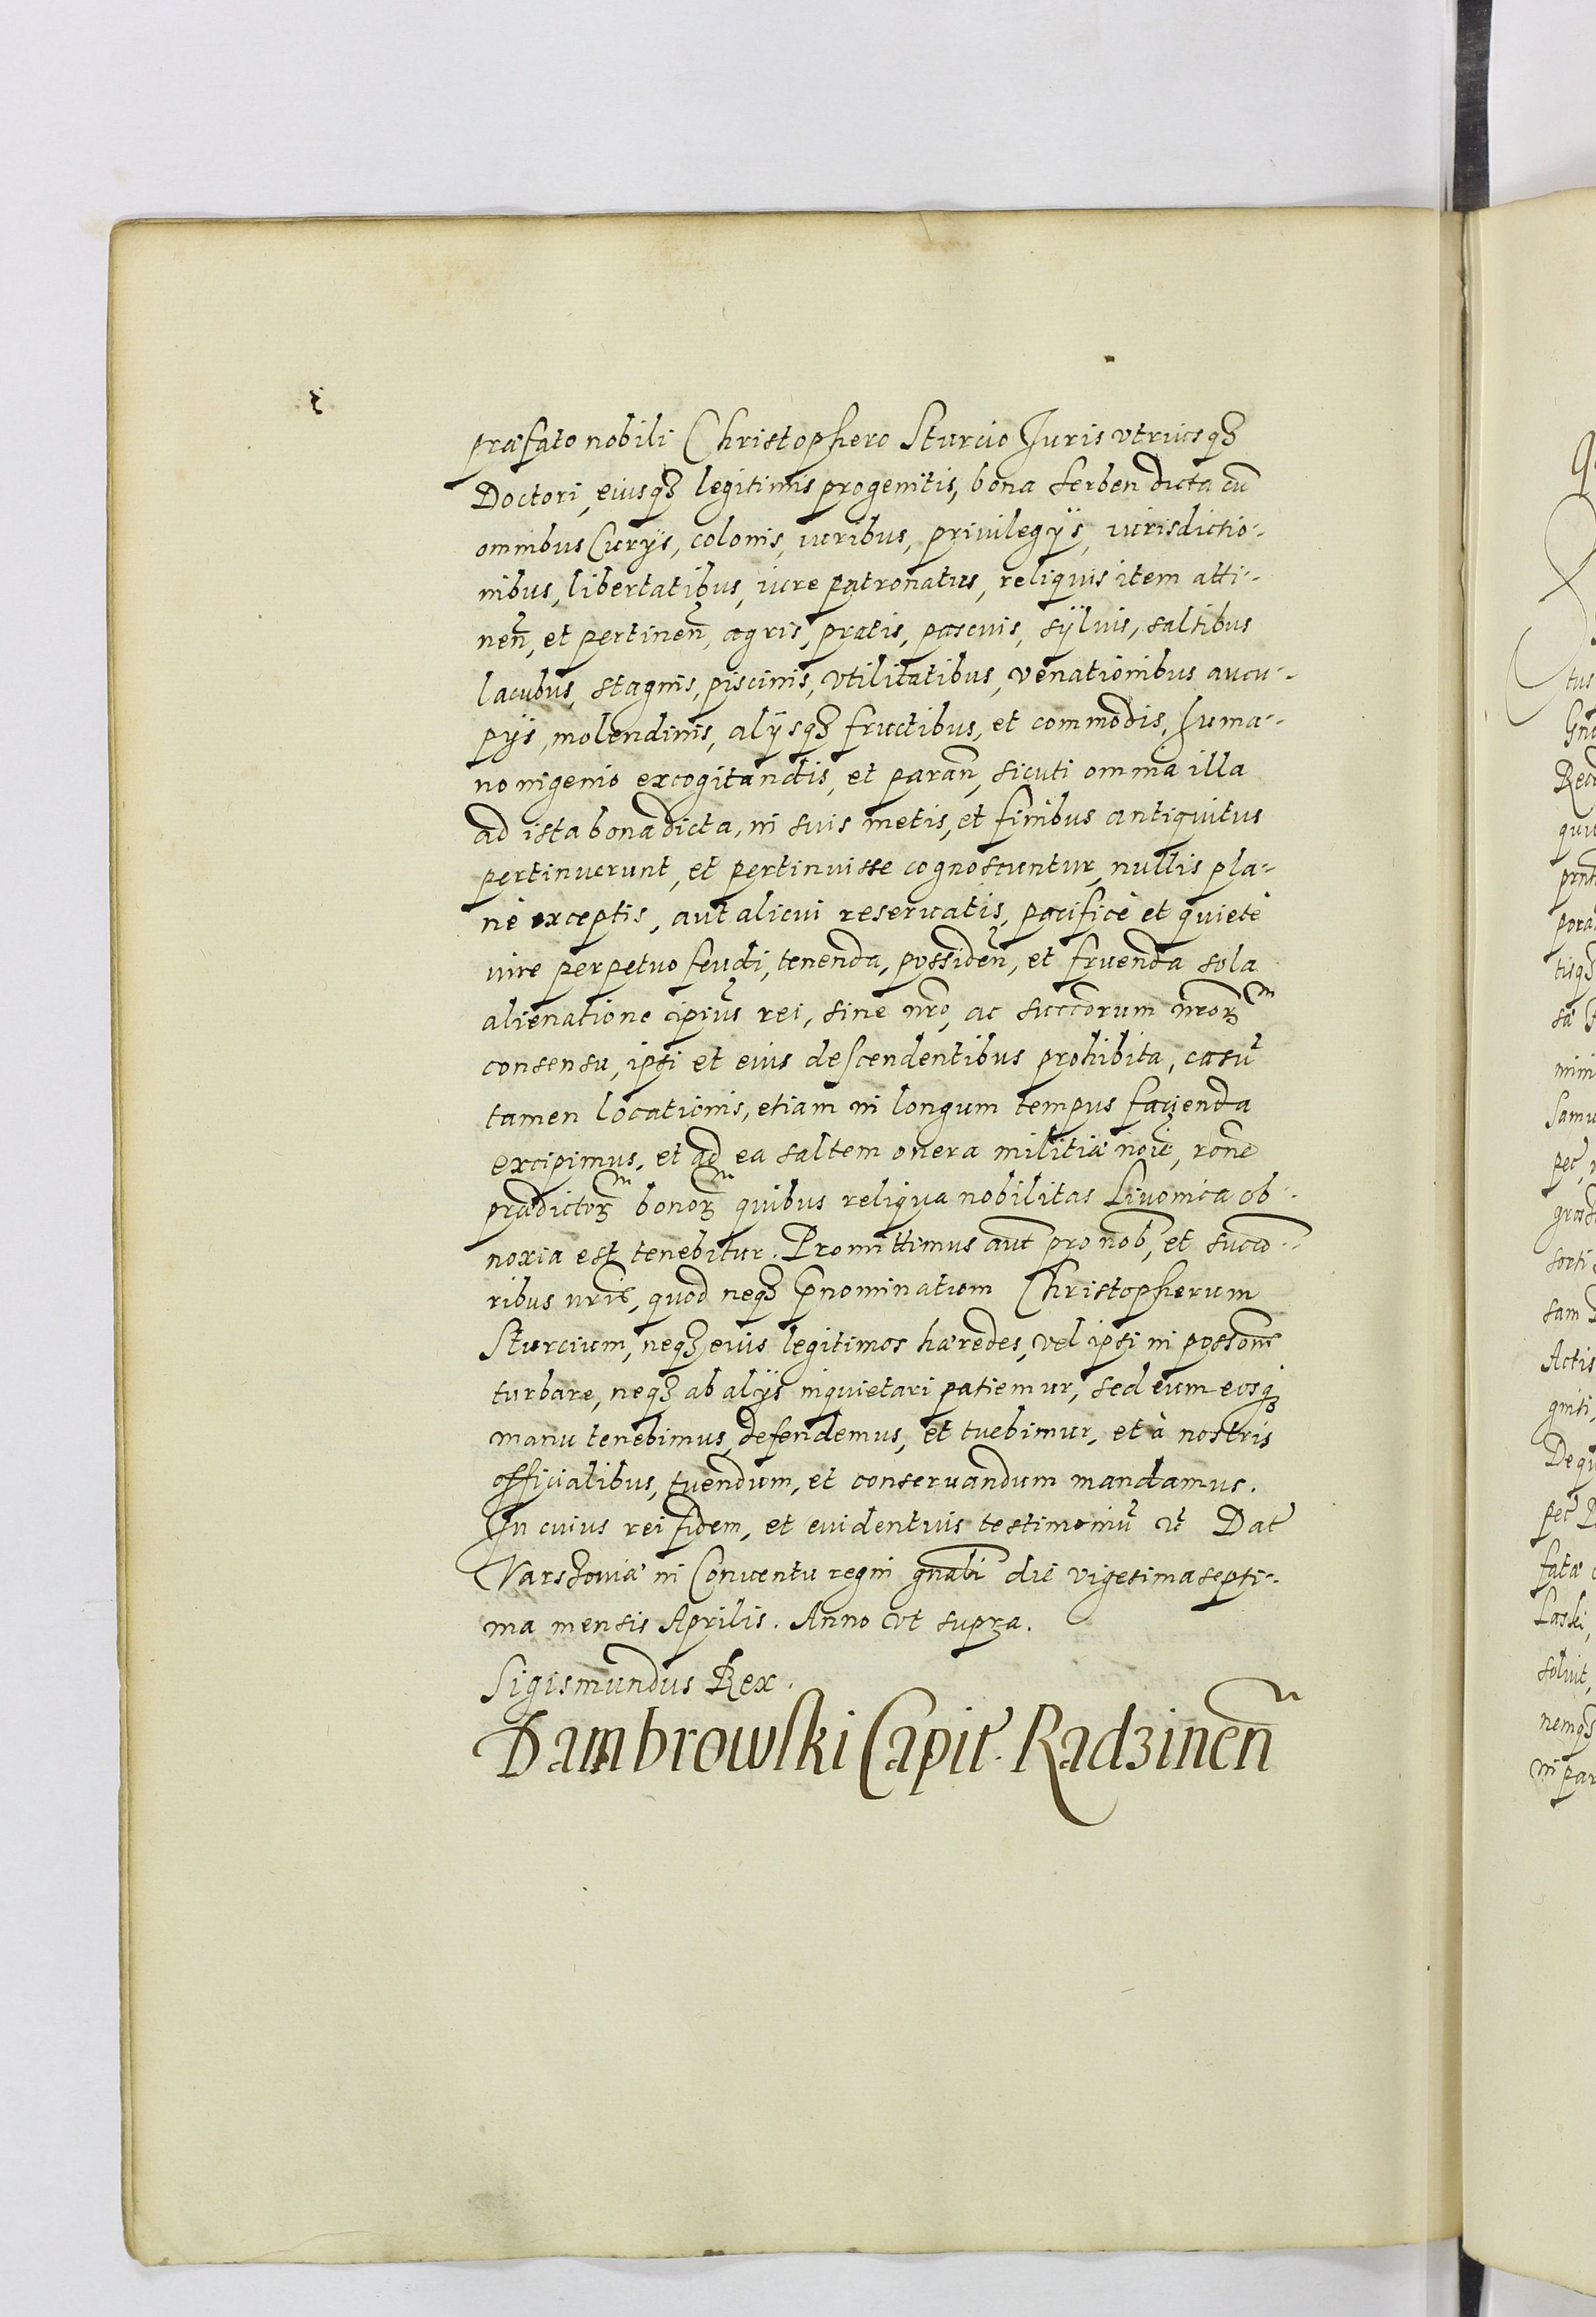 præfato nobili Christophero Sturcio Juris vtriusqȝ
Doctori, eiusqȝ legitimis progenitis, bona Serben dicta cū
omnibus Curÿs, colonis, iuribus, priuilegÿs, iurisdictio-
nibus, libertatibus, iure patronatus, reliquis item atti-
neñ, et pertineñ, agris, pratis, pascuis, sÿluis, saltibus
lacubus, stagnis, piscinis, vtilitatibus, venationibus aucu-
pÿs, molendinis, alÿsqȝ fructibus, et commodis, huma-
no ingenio excogitandis, et parañ, sicuti omnia illa
ad ista bona dicta, in suis metis, et finibus antiquitus
pertinuerunt, et pertinuisse cognoscuntur, nullis pla-
nè exceptis, aut alicui reseruatis, pacificè et quietè
iure perpetuo feudi, tenenda, possideñ, et fruenda sola
alienatione ipius rei, sine nro, ac succorum nroꝝ
consensu, ipsi et eius descendentibus prohibita, casū
tamen locationis, etiam in longum tempus facienda
excipimus, et ad ea saltem onera militiæ noīe, rone
prædictoꝝ bonoꝝ quibus reliqua nobilitas Liuonica ob-
noxia est tenebitur. Promittimus aut pro nob, et succo-
ribus nris, quod neqȝ pnominatum Christopherum
Sturcium, neqȝ eius legitimos hæredes, vel ipsi in possone
turbare, neqȝ ab alÿs inquietari patiemur, sed eum eosqȝ
manu tenebimus, defendemus, et tuebimur, et à nostris
officialibus, tuendum, et conseruandum mandamus.
In cuius rei fidem, et euidentius testimoniū ꝛc Dat
Varszouiæ in Conuentu regni gnali die vigesima septi-
ma mensis Aprilis. Anno vt supra.
Sigismundus Rex.
Dambrowski Capit. Radzineñ